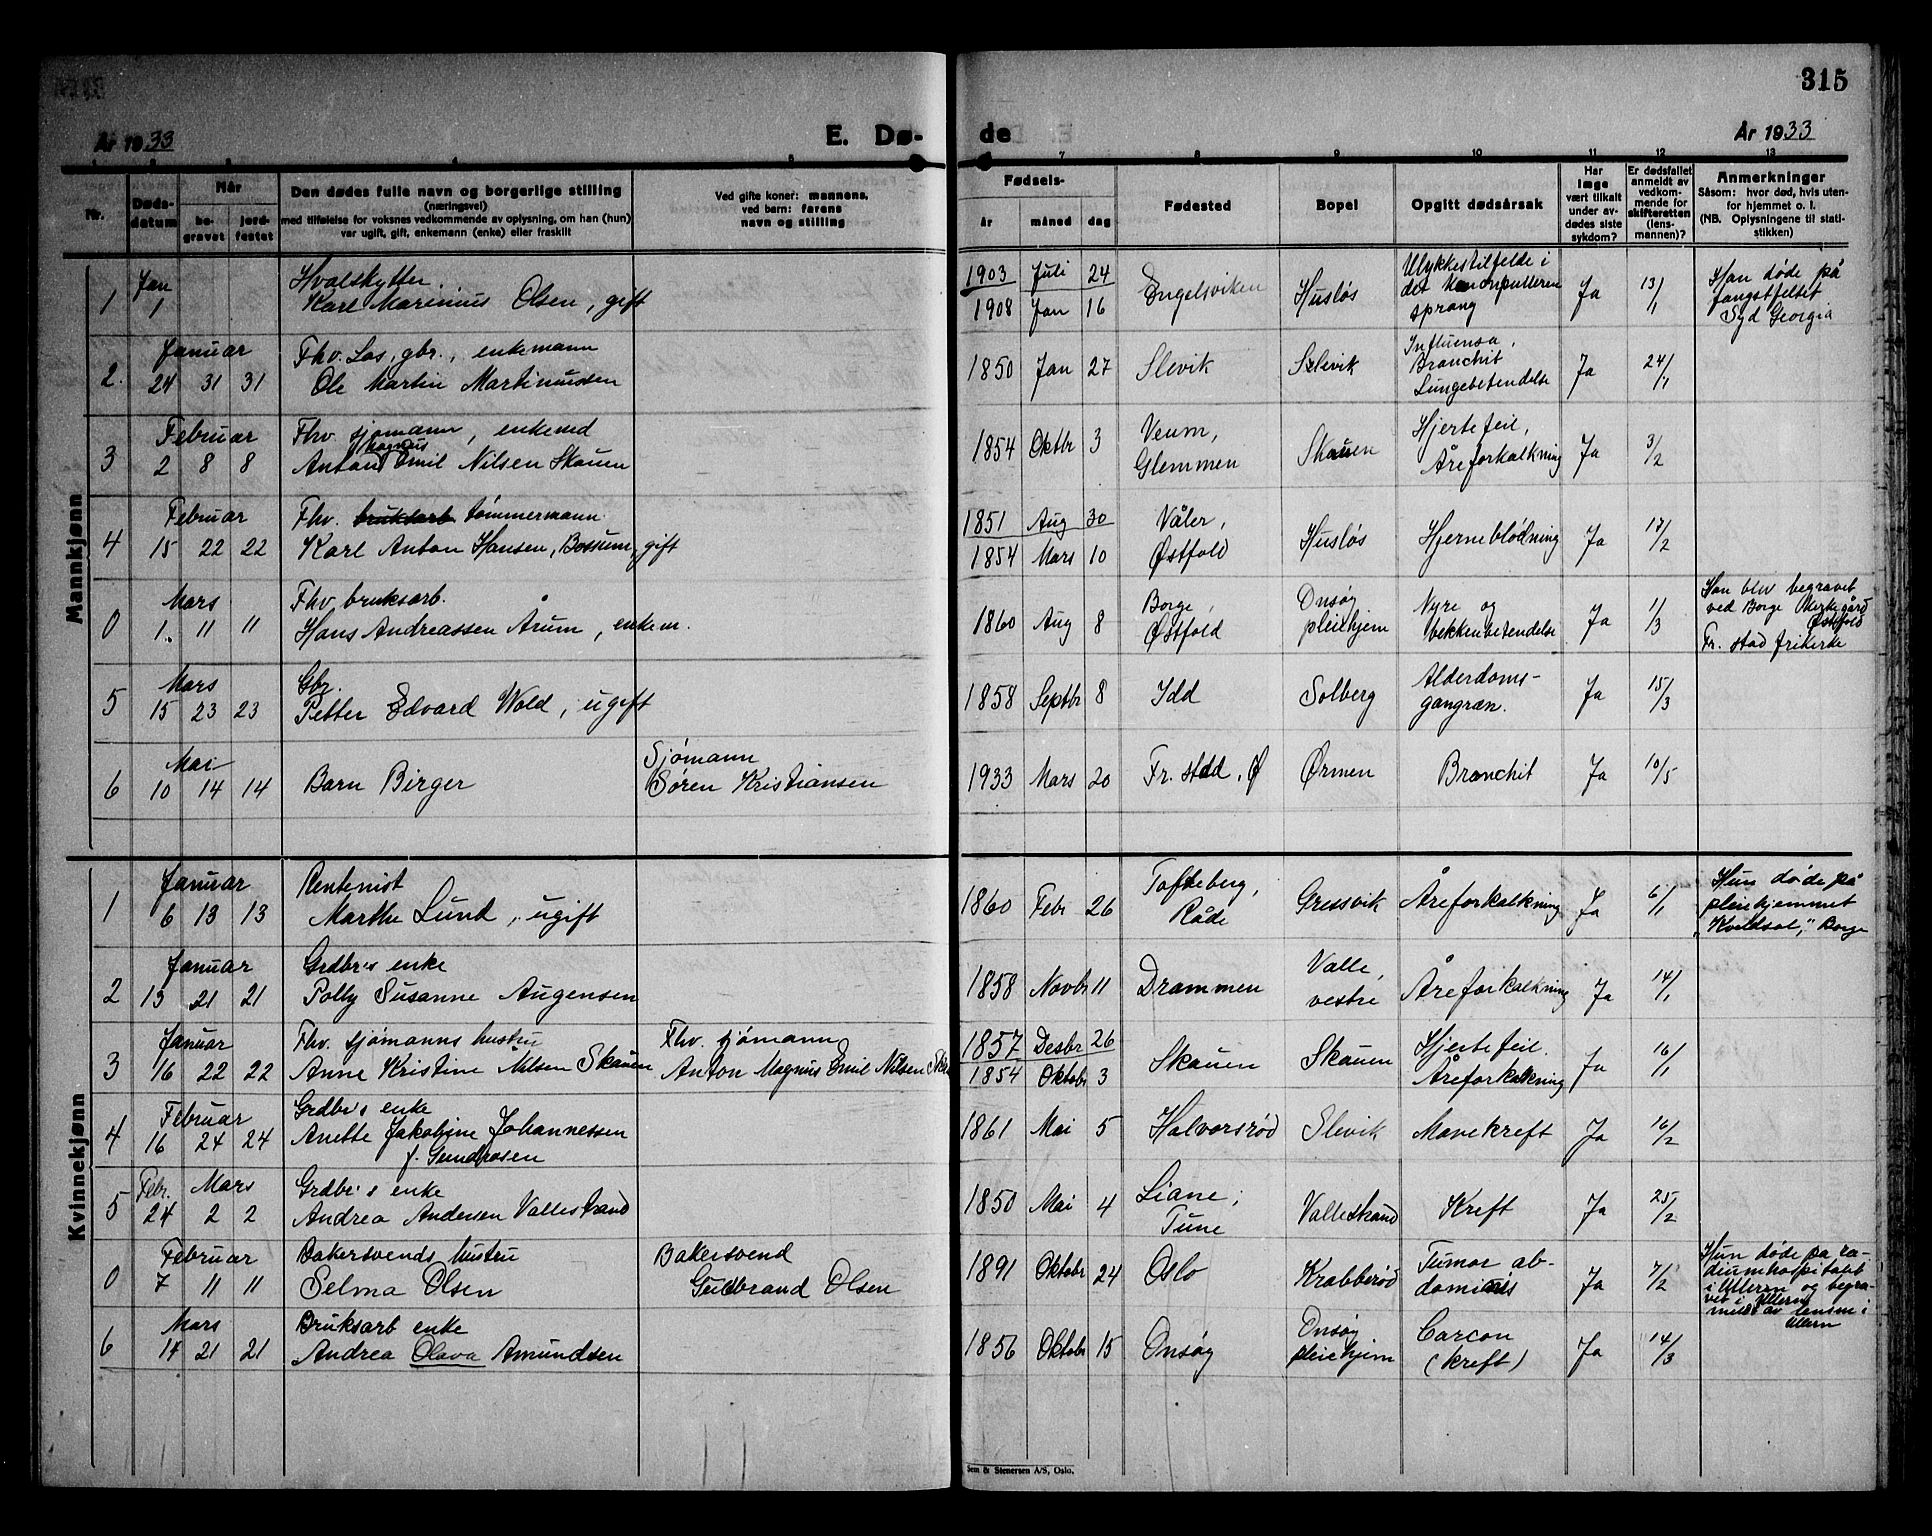 315
År 1933
E. Dø-
de
År 1933
1 2 3 4 5
7 8 9 10 11 12 13
Nr.
Døds-
datum
Når
be-
gravet
jord-
festet
Den dødes fulle navn og borgerlige stilling
(næringsvei)
med tilføielse for voksnes vedkommende av oplysning, om han (hun)
var ugift, gift, enkemann (enke) eller fraskilt
Ved gifte koner: mannens,
ved barn: farens
navn og stilling
Fødsels-
år måned dag
Fødested
Bopel
Opgitt dødsårsak
Har
læge
vært tilkalt
under av-
dødes siste
sykdom?
Er dødsfallet
anmeldt av
vedkom-
mende for
skifteretten
(lens-
mannen)?
Anmerkninger
Såsom: hvor død, hvis uten-
for hjemmet o. l.
(NB. Oplysningene til stati-
stikken)
Mannkjønn
Jan Hvalskytter.
1 1 Karl Marinius Olsen, gift
1903 Juli 24
1908 Jan 16
Engelsviken Husløs
Ulykkestilfelde i
det kanonpulleren
sprang
Ja 13/1
Han døde på
fangstfeltet
Syd Georgia
Januar Fhv. Los, gbr., enkemann
2. 24 31 31 Ole Martin Martinussen
1850 Jan 27 Slevik Slevik
Influensa,
Bronchit
Lungebetendelse
Ja 24/1
Februar Fhv. sjømann, enkemd
Magnus
3 2 8 8 Anton Emil Nilsen Skauen
1854 Oktbr 3
Veum,
Glemmen
Skauen
Hjertefeil,
Åreforkalkning
Ja 3/2
Februar Fhv. bruksarb. tømmermann
4 15 22 22 Karl Anton Hansen, Bossum, gift
1851 Aug 30
1854 Mars 10
Våler,
Østfold
Husløs Hjerneblødning Ja 17/2
Mars Fhv. bruksarb.
0 1. 11 11 Hans Andreassen Årum, enkem.
1860 Aug 8
Borge,
Østfold
Onsøy
pleiehjem
Nyre og
bekkenbetendelse
Ja 1/3
Han blev begravet
ved Borge kirkegård
Østfold
Fr. stad frikirke
Mars Gbr.
5 15 23 23 Petter Edvard Wold, ugift
1858 Septbr 8 Idd Solberg
Alderdoms-
gangræn.
Ja 15/3
Mai Sjømann
6 10 14 14 Barn Birger Søren Kristiansen
1933 Mars 20 Fr. stad, Ø Ørmen Bronchit Ja 10/5
Kvinnekjønn
Januar Rentenist
1 6 13 13 Marthe Lund, ugift
1860 Febr 26
Tofteberg,
Råde
Gressvik Åreforkalkning Ja 6/1
Hun døde på
pleiehjemmet
"Kveldsol," Borge
Januar Grdbr's enke
2 13 21 21 Polly Susanne Augensen
1858 Novbr 11 Drammen
Valle,
vestre
Åreforkalkning Ja 14/1
Januar Fhv. sjømanns hustru Fhv. sjømann
3 16 22 22 Anne Kristine Nilsen Skauen Anton Magnus Emil Nilsen
1857 Desbr 26
1854 Oktobr 3
Skauen Skauen
Hjertefeil.
Åreforkalkning
Ja 16/1
Februar Grdbr's enke
4 16 24 24 Anette Jakobine Johannessen
f. Gundrosen
1861 Mai 5 Halvorsrød Slevik Mavekreft Ja 16/2
Febr. Mars Grdbr's enke
5 24 2 2 Andrea Andersen Vallestrand
1850 Mai 4
Liane,
Tune
Vallestrand Kreft Ja 25/2
Februar Bakersvends hustru Bakersvend
0 7 11 11 Selma Olsen Gudbrand Olsen
1891 Oktobr 24 Oslo Krabberød
Tumor ab-
dominis
Ja 7/2
Hun døde på ra-
diumhospitalet
i Ullern og begra-
vet i Ullern
meldt av lensm i
Ullern
Mars Bruksarb enke
6 14 21 21 Andrea Olava Amundsen
1856 Oktobr 15 Onsøy
Onsøy
pleiehjem
Carcon
(kreft)
Ja 14/3
Sem & Stenersen A/S, Oslo.